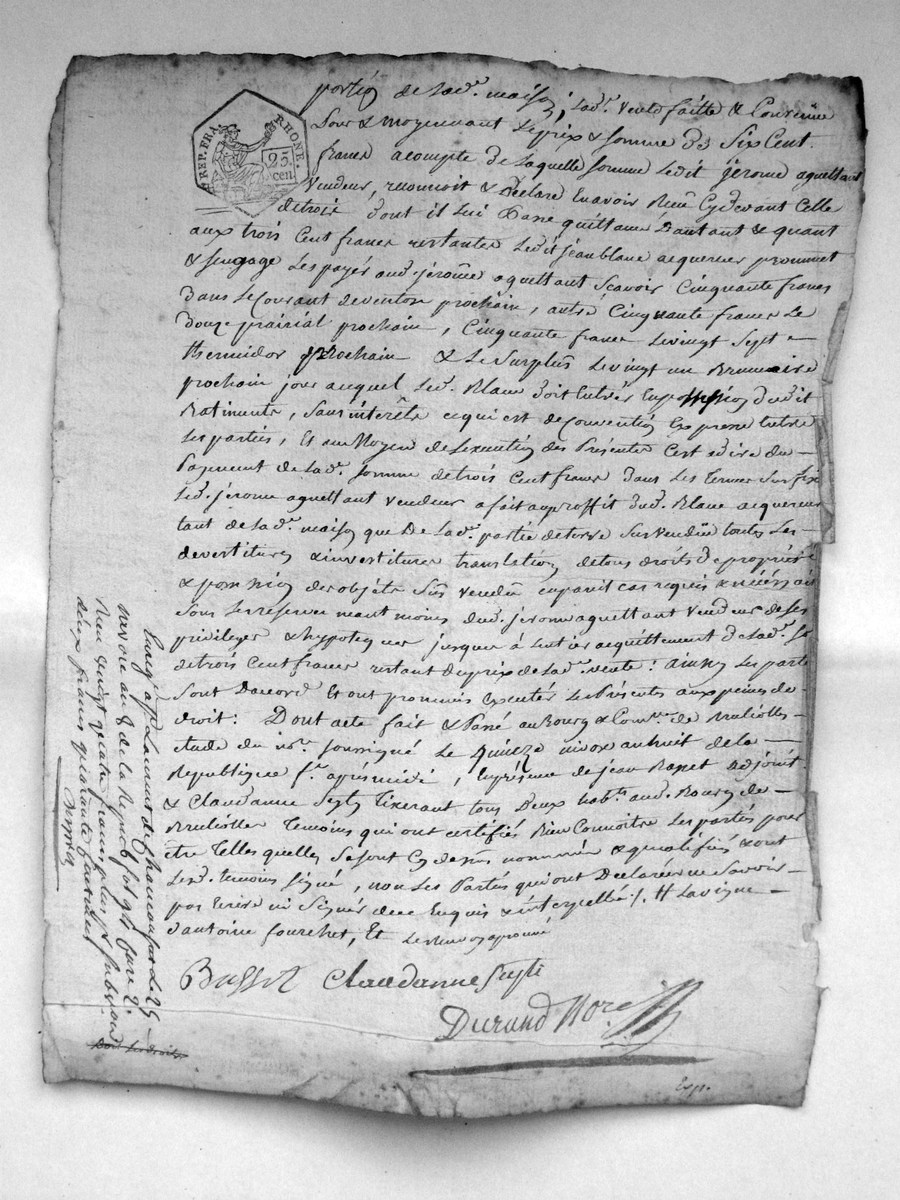 REP. FRA.
RHONE.
25
cen.
portion de lad. maison, lad. vente faitte & Convenüe
Sous & moyennant Le prix & somme de Six Cent
francs acompte de laquelle somme ledit jérome aquettant
vendeur, reconnoit & déclare En avoir Reçu Cy devant Celle
de trois dont il lui Passe quittance D'autant & quant
aux trois Cent francs restantes Ledit jean blanc acquereur prommet
& s'engage Les payés aud. jérôme aquettant Scavoir Cinquante francs
Dans Le Courant de ventose prochain, autre Cinquante francs Le
Douze prairial prochain, Cinquante francs Le vingt Sept
thermidor prochain & Le Surplus Le vingt un Brumaire
prochain jour auquel Led. Blanc doit Entrés En possession dudit
Batiments, Sans interêts ce qui est de convention Expresse Entre
Les parties, Et au Moyen de Lexecution des Présentes C'est adire du
Payement de Lad. somme de trois Cent francs Dans Les termes Sus fix
Led. jérome aquettant vendeur a fait au proffit dud. Blanc acquereur
tant de Lad. maison que De Lad. partie de terre Sus vendüe toutes Les
devestitures & investitures translation de tous droits de propriété
& possession des objets Sus vendu en pareil cas requis & nécéssaire
Sous Les reserves neant moins dud. jérome aquettant vendeur de Ses
privileges & hypoteques jusques à Lentier acquittement de Lad. So
de trois Cent francs restant du prix de Lad. vente: ainsy Les partie
Sont Daccord Et ont promis Executer Les Présentes aux peines de
droit: Dont acte fait & Passé au Bourg & Comm. de
Etude du no.re soussigné Le quinze nivose an huit de la
Republique f. aprés midi, En présence de jean Basset adjoint
& Claudanne Seyty tixerant tous Deux hab.ts aud. Bourg de
Temoins qui ont certifiés Bien Connoitre Les parties pour
être Telles quelles Se sont Cy dessus nommés & qualifiés & ont
Lesd. temoins signé, non Les Parties qui ont Declarées ne Savoir
pas Ecrire ni Signer de ce Enquis & interpellé. /. # La vigne
d'antoine fourchet, Et Le Renvoy aprouvé
Basset Claudanne Seyti
Durand No.re
Enreg. à St Laurent de Chamousset Le 25
nivose an 8 de la Repub.
Reçu vingt quatre francs plus p. Subvon
deux francs quarante Centimes
Exp.